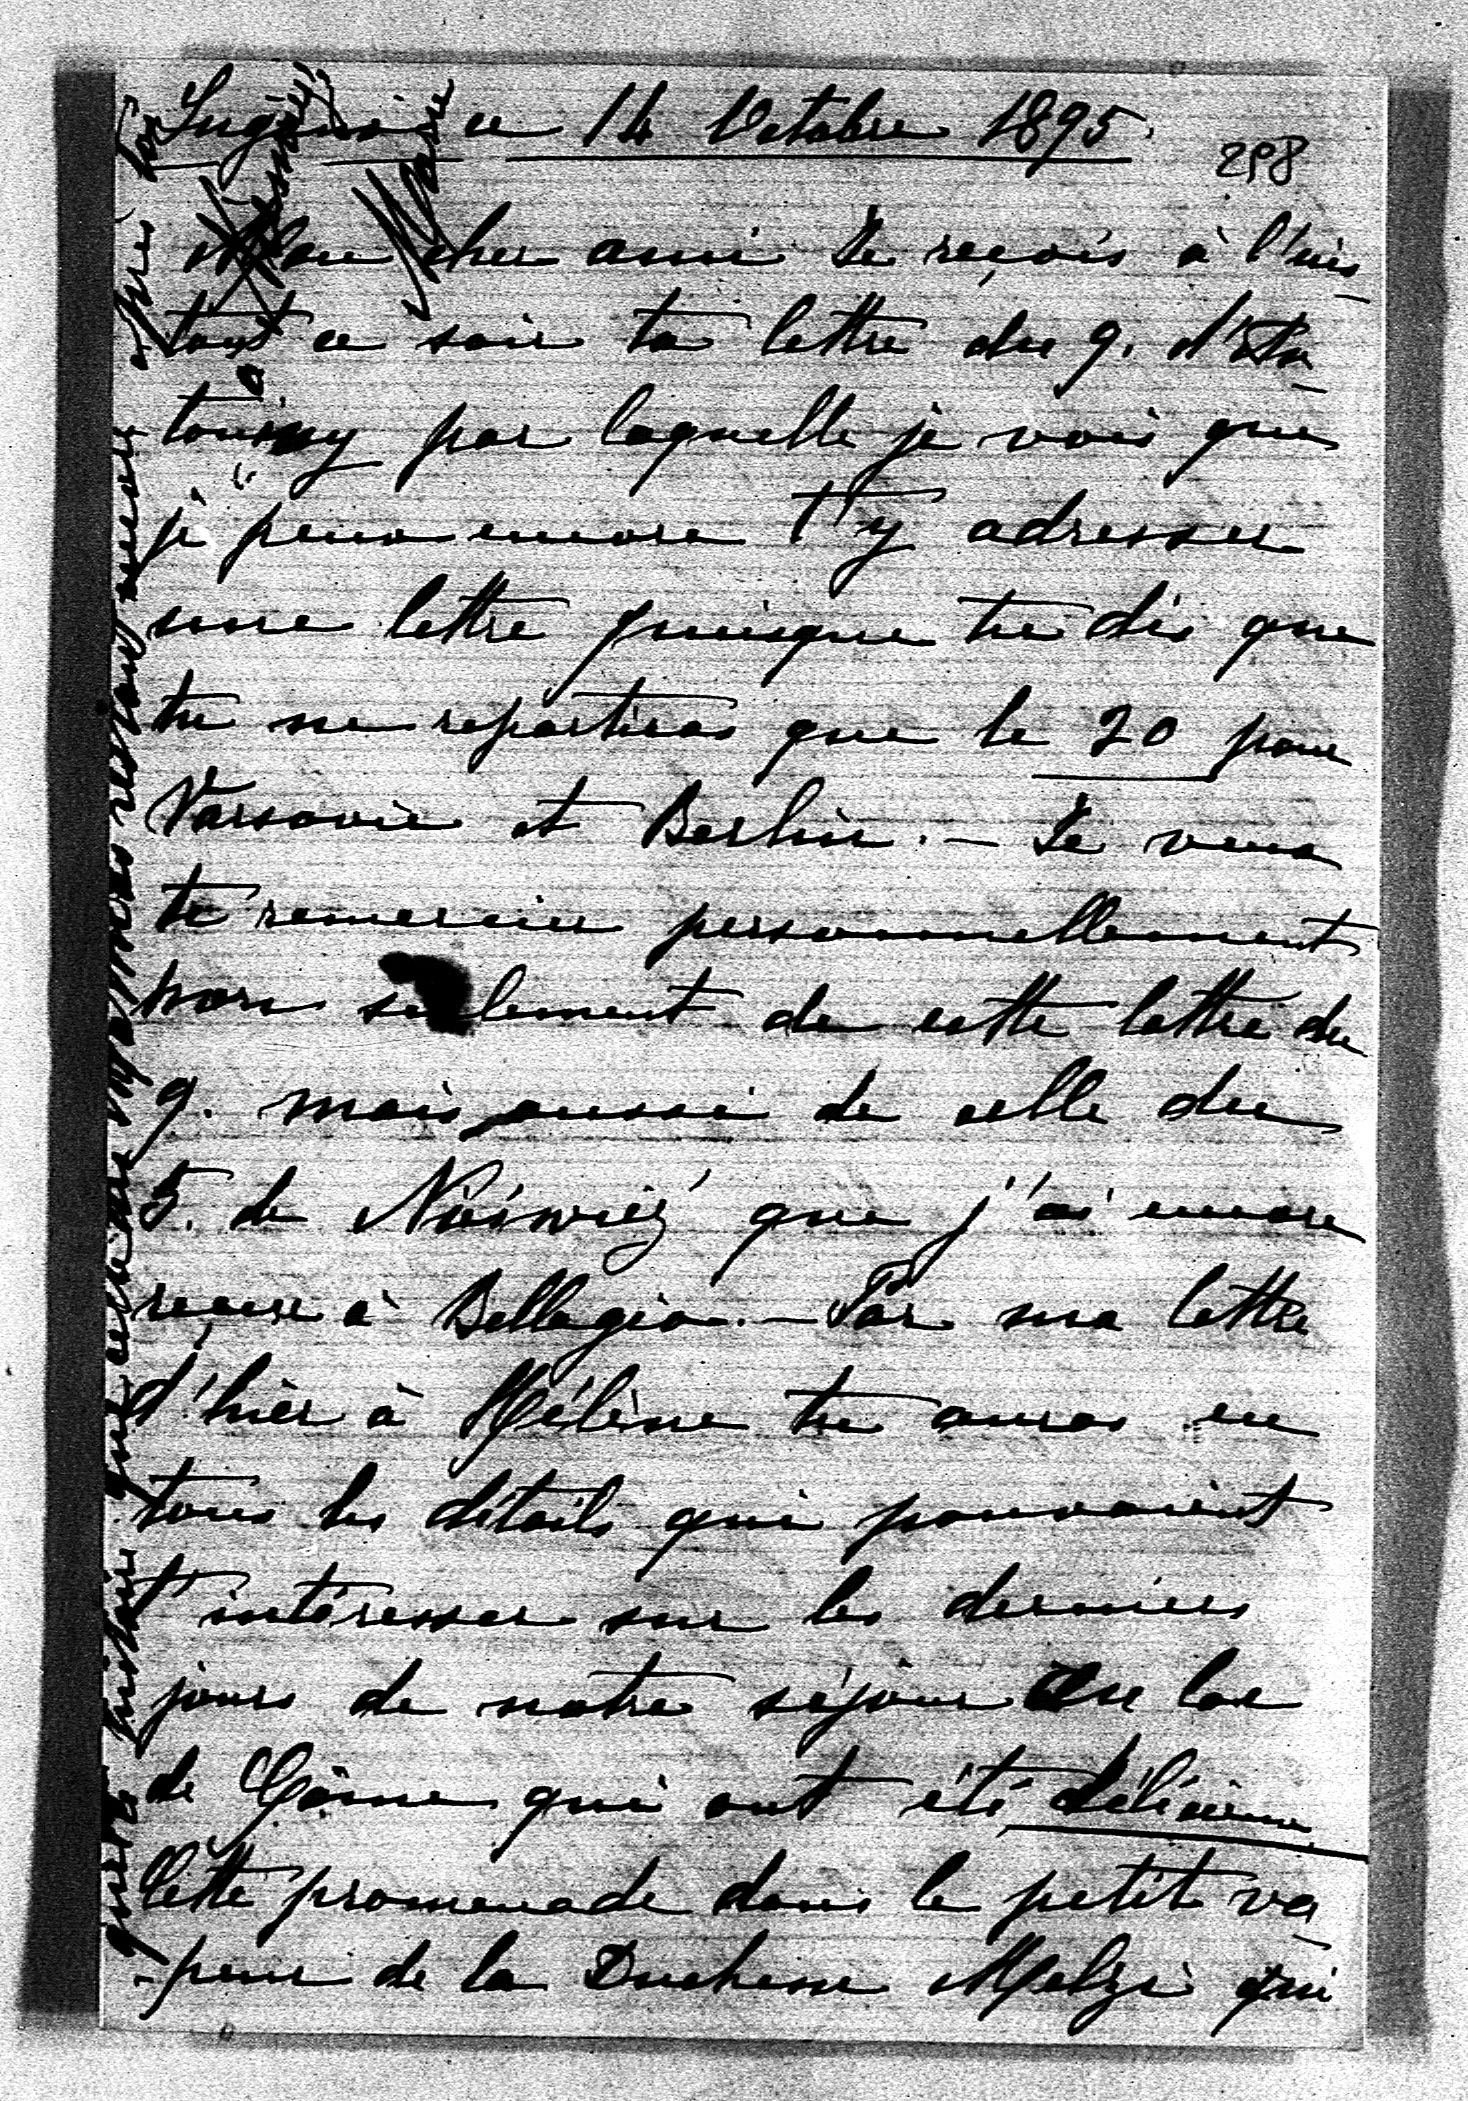 Lugano ce 14 Octobre 1895.
298
Mon cher ami Je reçois à l'ins
tant ce soir ta lettre du 9. d'An
toniny par laquelle je vois que
je peux encore t'y adresser
une lettre puisque tu dis que
tu ne repartiras que le 20 pour
Varsovie et Berlin. — Je veux
te remercier personnellement
non seulement de cette lettre du
9. mais aussi de celle du
5. de Nieśwież que j'ai encore
reçue à Bellagio. — Par ma lettre
d'hier à Hélène tu auras eu
tous les détails qui pouvaient
t'intéresser sur les derniers
jours de notre séjour au lac
de Côme qui ont été délicieux
Cette promenade dans le petit va
-peur de la Duchesse Melzi qui
Marie